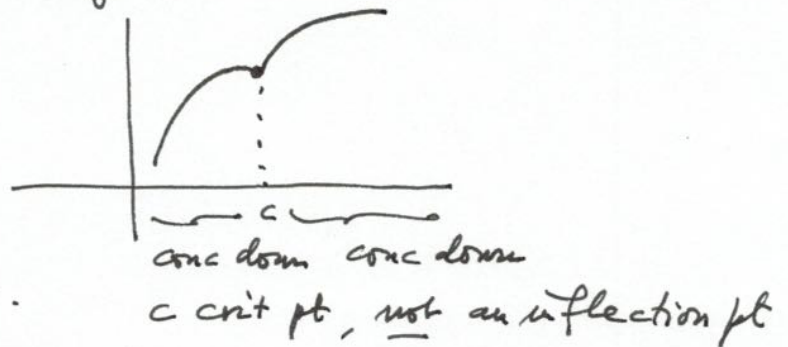 c
conc down conc down
c crit pt, not an inflection pt